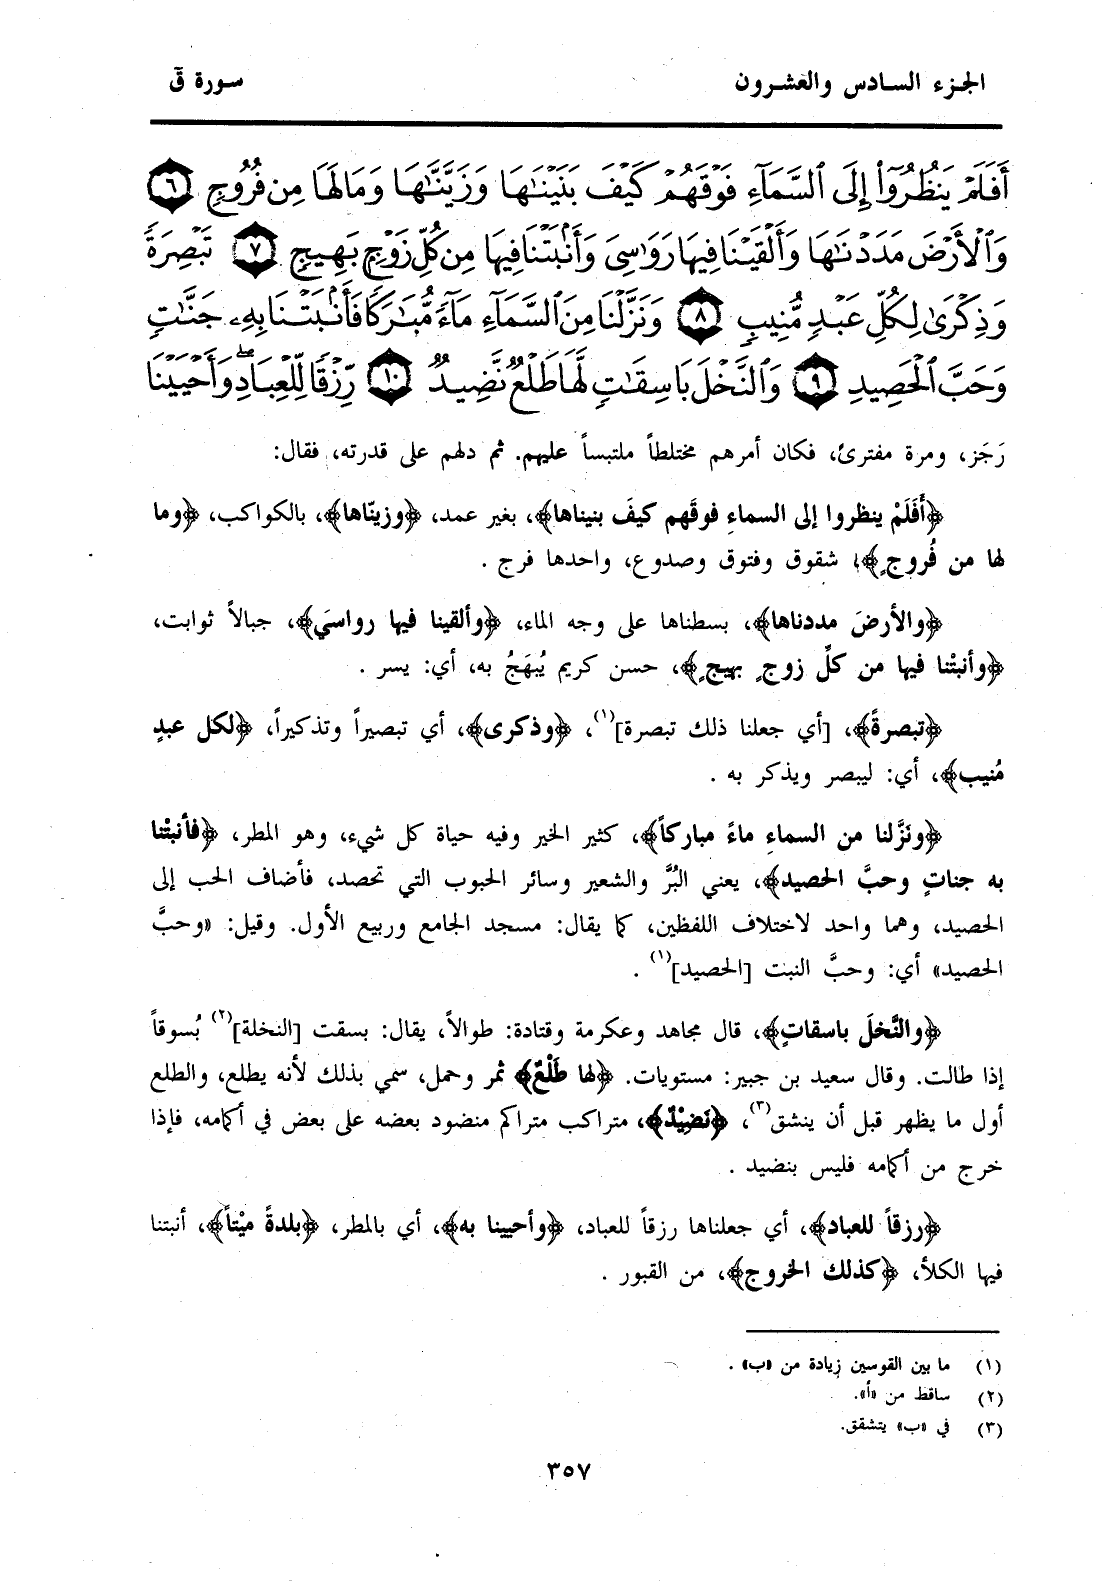 الجزء السادس والعشرون
سورة قٓ
أَفَلَمْ يَنظُرُوٓا۟ إِلَى ٱلسَّمَآءِ فَوْقَهُمْ كَيْفَ بَنَيْنَٰهَا وَزَيَّنَّٰهَا وَمَا لَهَا مِن فُرُوجٍ ٦
وَٱلْأَرْضَ مَدَدْنَٰهَا وَأَلْقَيْنَا فِيهَا رَوَٰسِىَ وَأَنۢبَتْنَا فِيهَا مِن كُلِّ زَوْجٍۭ بَهِيجٍ ٧ تَبْصِرَةً
وَذِكْرَىٰ لِكُلِّ عَبْدٍ مُّنِيبٍ ٨ وَنَزَّلْنَا مِنَ ٱلسَّمَآءِ مَآءً مُّبَٰرَكًا فَأَنۢبَتْنَا بِهِۦ جَنَّٰتٍ
وَحَبَّ ٱلْحَصِيدِ ٩ وَٱلنَّخْلَ بَاسِقَٰتٍ لَّهَا طَلْعٌ نَّضِيدٌ ١٠ رِّزْقًا لِّلْعِبَادِ ۖ وَأَحْيَيْنَا
رَجَز، ومرة مفترئ، فكان أمرهم مختلطاً ملتبساً عليهم. ثم دلهم على قدرته، فقال:
﴿أَفَلَمْ ينظروا إلى السماءِ فوقَهم كيفَ بنيناها﴾، بغير عمد، ﴿وزينّاها﴾، بالكواكب، ﴿وما
لها من فُروجٍ﴾؛ شقوق وفتوق وصدوع، واحدها فرج .
﴿والأرضَ مددناها﴾، بسطناها على وجه الماء، ﴿وألقينا فيها رواسيَ﴾، جبالاً ثوابت،
﴿وأنبتْنا فيها من كلِّ زوجٍ بهيجٍ﴾، حسن كريم يُبهَجُ به، أي: يسر .
﴿تبصرةً﴾، [أي جعلنا ذلك تبصرة](١)، ﴿وذكرى﴾، أي تبصيراً وتذكيراً، ﴿لكل عبدٍ
مُنيب﴾، أي: ليبصر ويذكر به .
﴿ونَزَّلنا من السماءِ ماءً مباركاً﴾، كثير الخير وفيه حياة كل شيء، وهو المطر، ﴿فأنبتْنا
به جناتٍ وحبَّ الحصيد﴾، يعني البُرَّ والشعير وسائر الحبوب التي تحصد، فأضاف الحب إلى
الحصيد، وهما واحد لاختلاف اللفظين، كما يقال: مسجد الجامع وربيع الأول. وقيل: «وحبَّ
الحصيد» أي: وحبَّ النبت [الحصيد](١) .
﴿والنَّخلَ باسقاتٍ﴾، قال مجاهد وعكرمة وقتادة: طوالاً، يقال: بسقت [النخلة](٢) بُسوقاً
إذا طالت. وقال سعيد بن جبير: مستويات. ﴿لها طَلْعٌ﴾ ثمر وحمل، سمي بذلك لأنه يطلع، والطلع
أول ما يظهر قبل أن ينشق(٣)، ﴿نَضِيْدٌ﴾، متراكب متراكم منضود بعضه على بعض في أكمامه، فإذا
خرج من أكمامه فليس بنضيد .
﴿رزقاً للعباد﴾، أي جعلناها رزقاً للعباد، ﴿وأحيينا به﴾، أي بالمطر، ﴿بلدةً ميْتاً﴾، أنبتنا
فيها الكلأ، ﴿كذلك الخروج﴾، من القبور .
(١) ما بين القوسين زيادة من «ب» .
(٢) ساقط من «أ».
(٣) في «ب» يتشقق.
٣٥٧